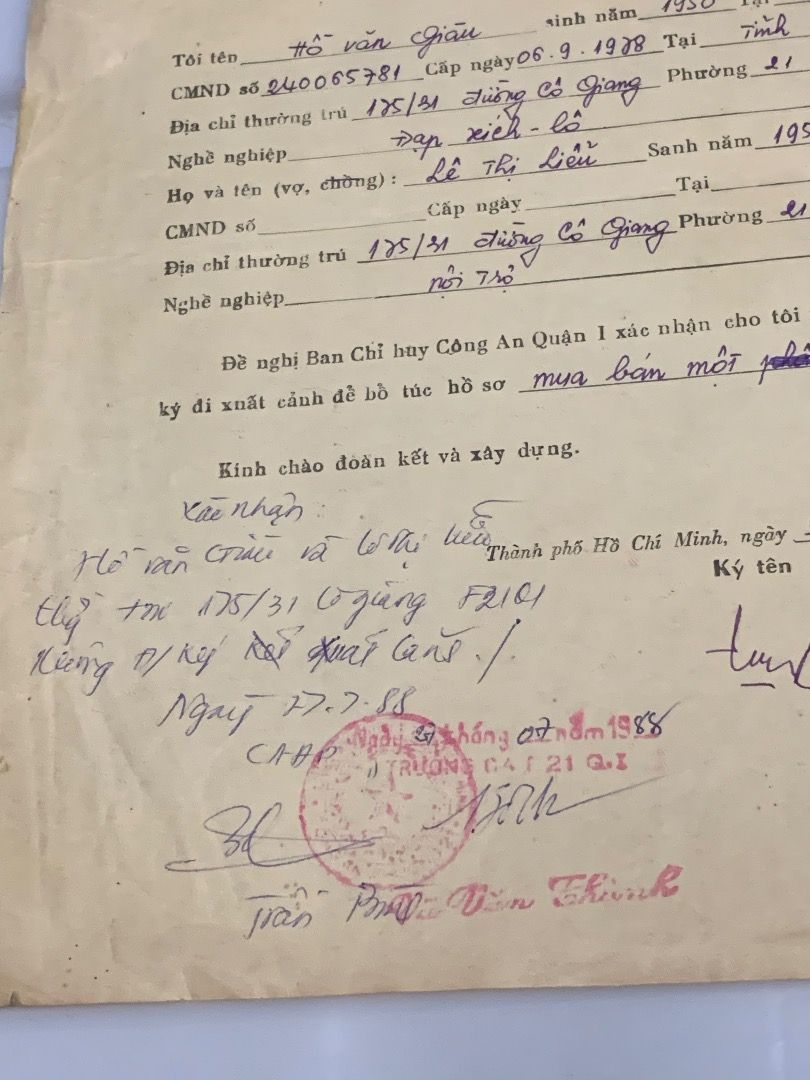 Tôi tên Hồ Văn Giàu sinh năm 1950 Tại
CMND số 240065781 Cấp ngày 06.9.1978 Tại Tỉnh
Địa chỉ thường trú 175/31 đường Cô Giang Phường 21
Nghề nghiệp Đạp xích-lô
Họ và tên (vợ, chồng): Lê Thị Liễu Sanh năm 195
CMND số Cấp ngày Tại
Địa chỉ thường trú 175/31 đường Cô Giang Phường 21
Nghề nghiệp nội trợ
Đề nghị Ban Chỉ huy Công An Quận I xác nhận cho tôi
ký đi xuất cảnh để bồ túc hồ sơ mua bán một
Kính chào đoàn kết và xây dựng.
Xác nhận:
Hồ văn Giàu và Lê Thị Liễu
Thành phố Hồ Chí Minh, ngày
Ký tên
175/31 Cô Giang F21Q1
không Đ/Ký xuất cảnh./.
Ngày 27.7.88
CAAP
Ngày 27 tháng 07 năm 1988
TRƯỞNG CA F 21 Q.I
Trần
Văn Thinh